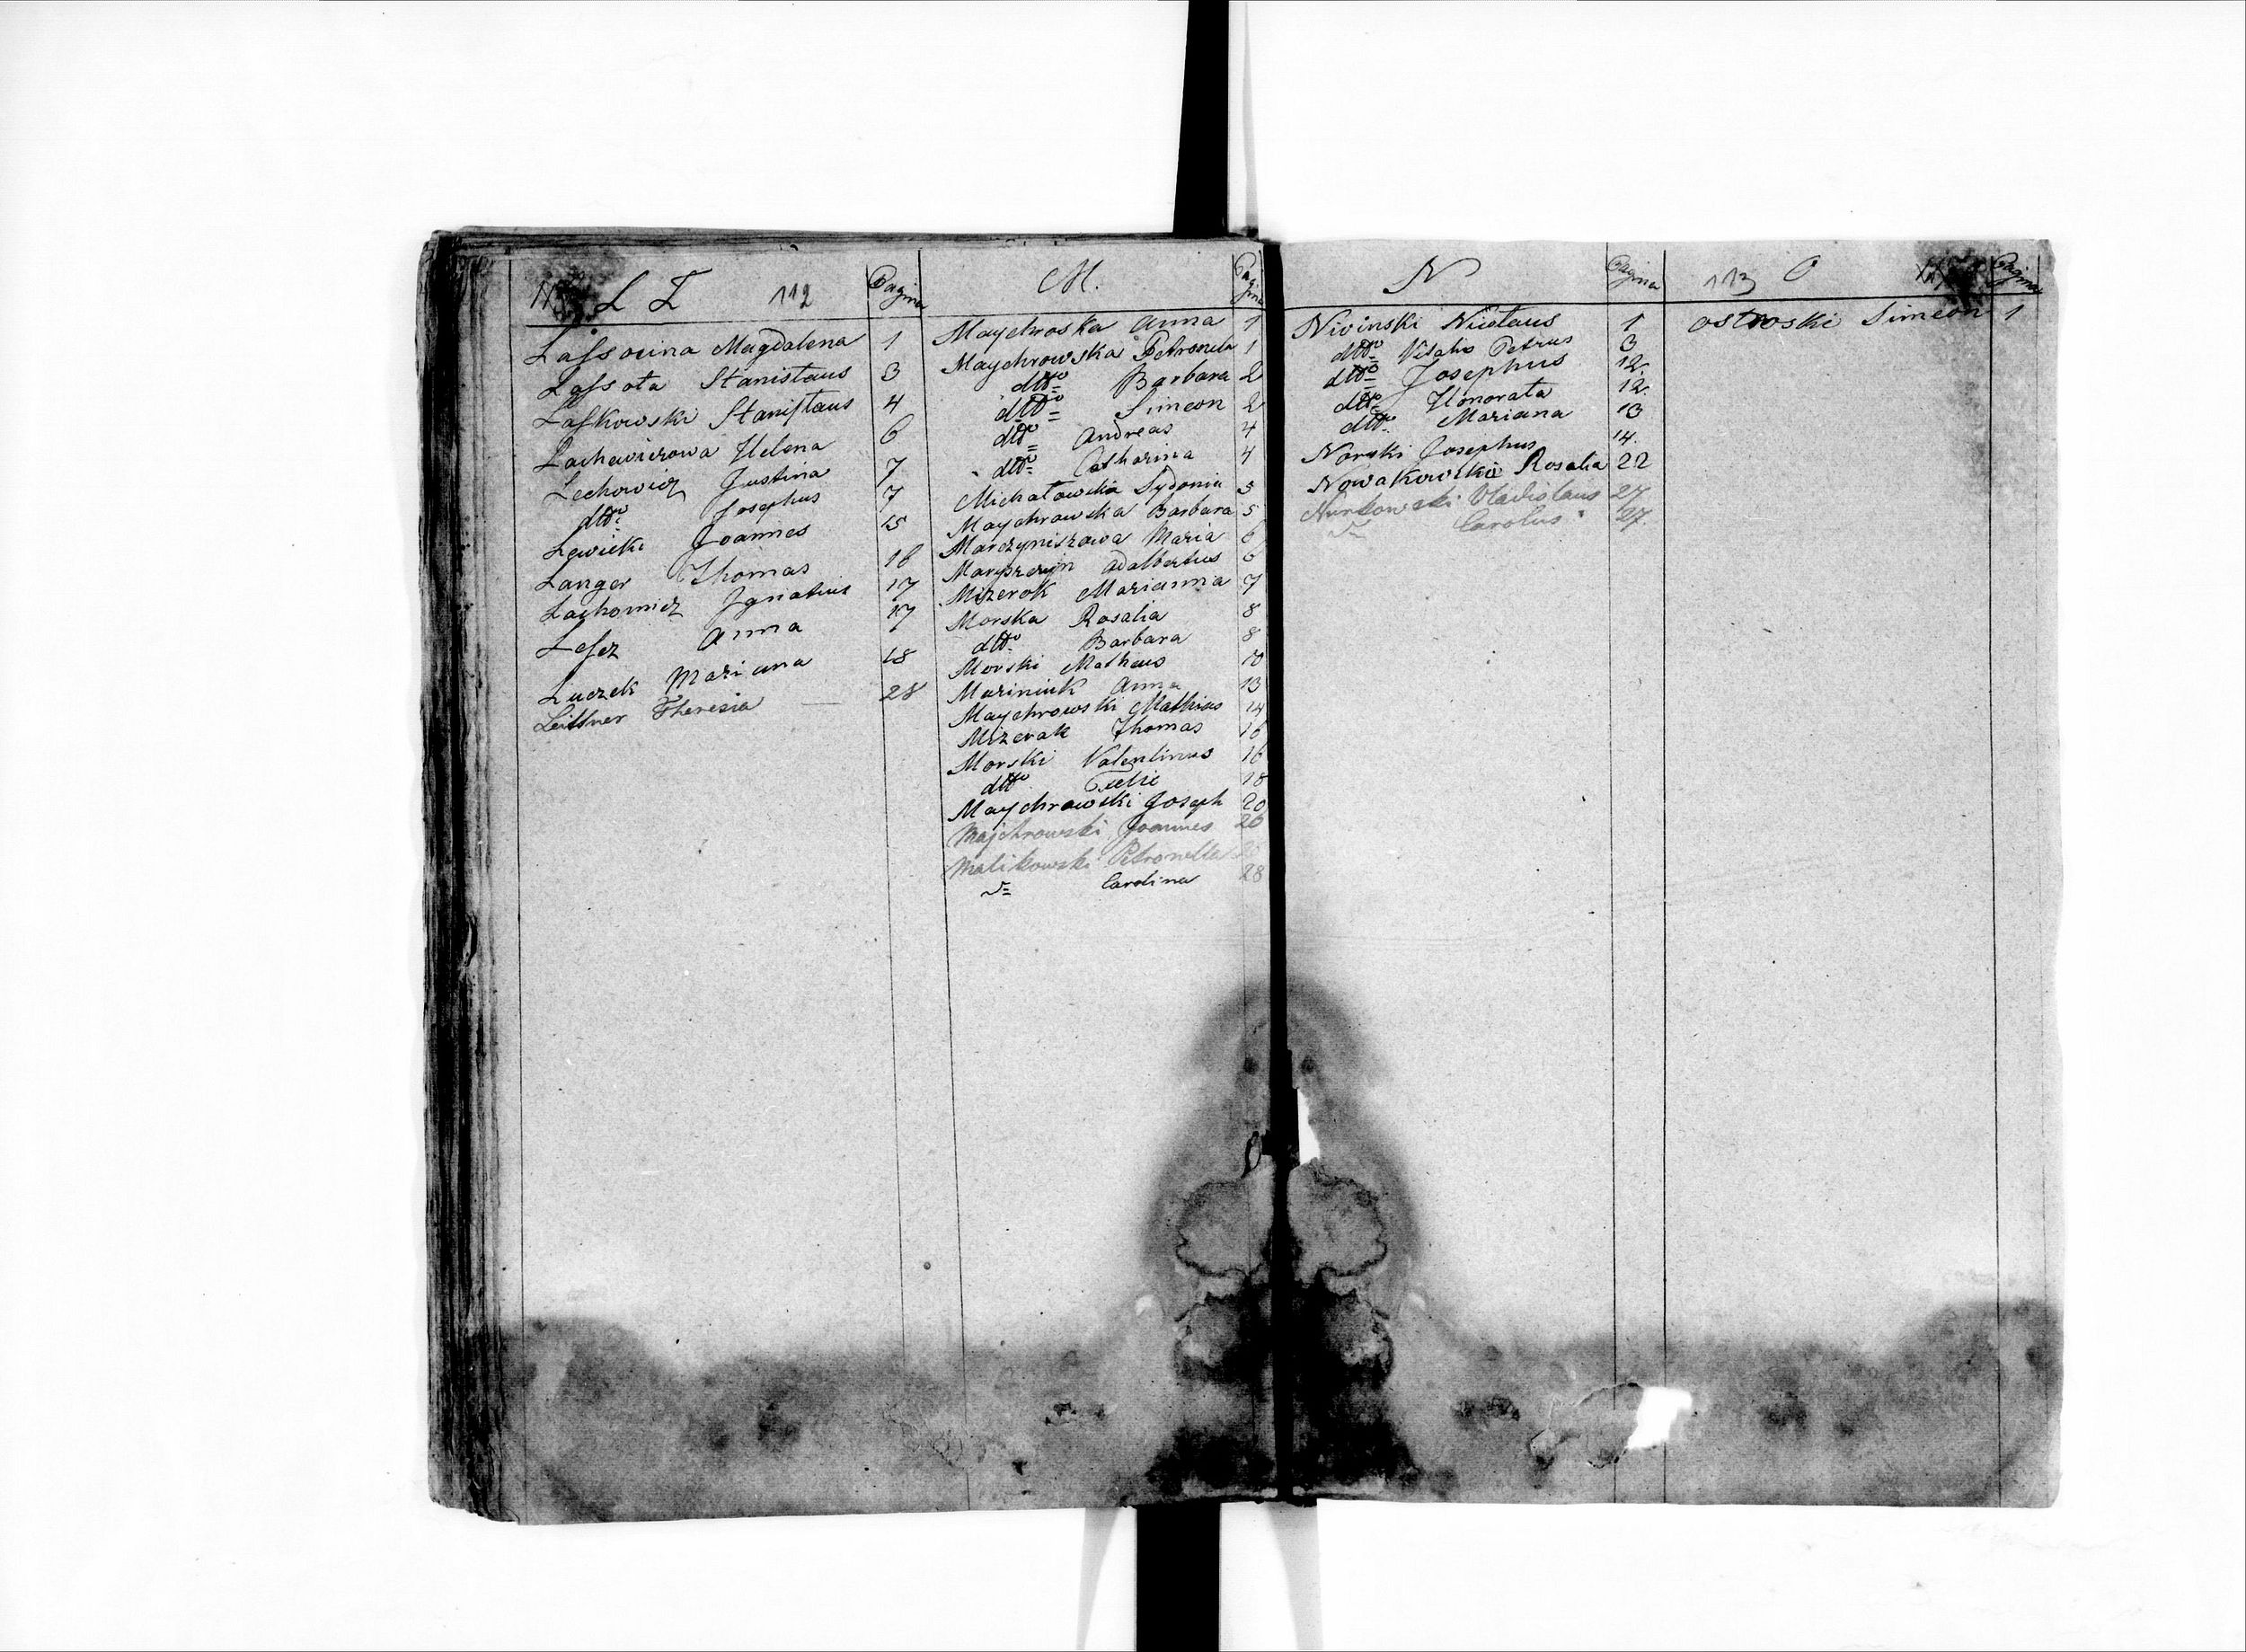 L Ł 112 Pagina
Lassocina Magdalena 1
Lassota Stanislaus 3
Laskowski Stanislaus 4
Lachowiczowa Helena 6
Lechowicz Justina 7
dtto Josephus 7
Lewicki Joannes 15
Langer Thomas 16
Lachowicz Ignatius 17
Lesez Anna 17
Luczek Mariana 18
Leittner Theresia — 28
M. Pagina
Maychroska Anna 1
Maychrowska Petronela 1
dtto Barbara 2
dtto Simeon 2
dtto Andreas 4
dtto Catharina 4
Michałowska Sydonia 5
Maychrowska Barbara 5
Marczyniszowa Maria 6
Adalbertus 6
Mizerok Marianna 7
Morska Rosalia 8
dtto Barbara 8
Morski Matheus 10
Mariniuk Anna 13
Maychrowski Mathias 14
Mizerak Thomas 16
Morski Valentinus 16
dtto 18
Maychrowski Joseph 20
Majchrowski Joannes 26
Malikowski Petronella
Carolina 28
N Pagina
Nivinski 1
dtto Vitalis Petrus 3
dtto Josephus 12.
dtto Honorata 12.
dtto Mariana 13
Norski Josephus 14.
Nowakowska Rosalia 22
Nurkowski Vladislaus 27
Carolus 27.
113 O Pagina
Ostroski Simeon 1